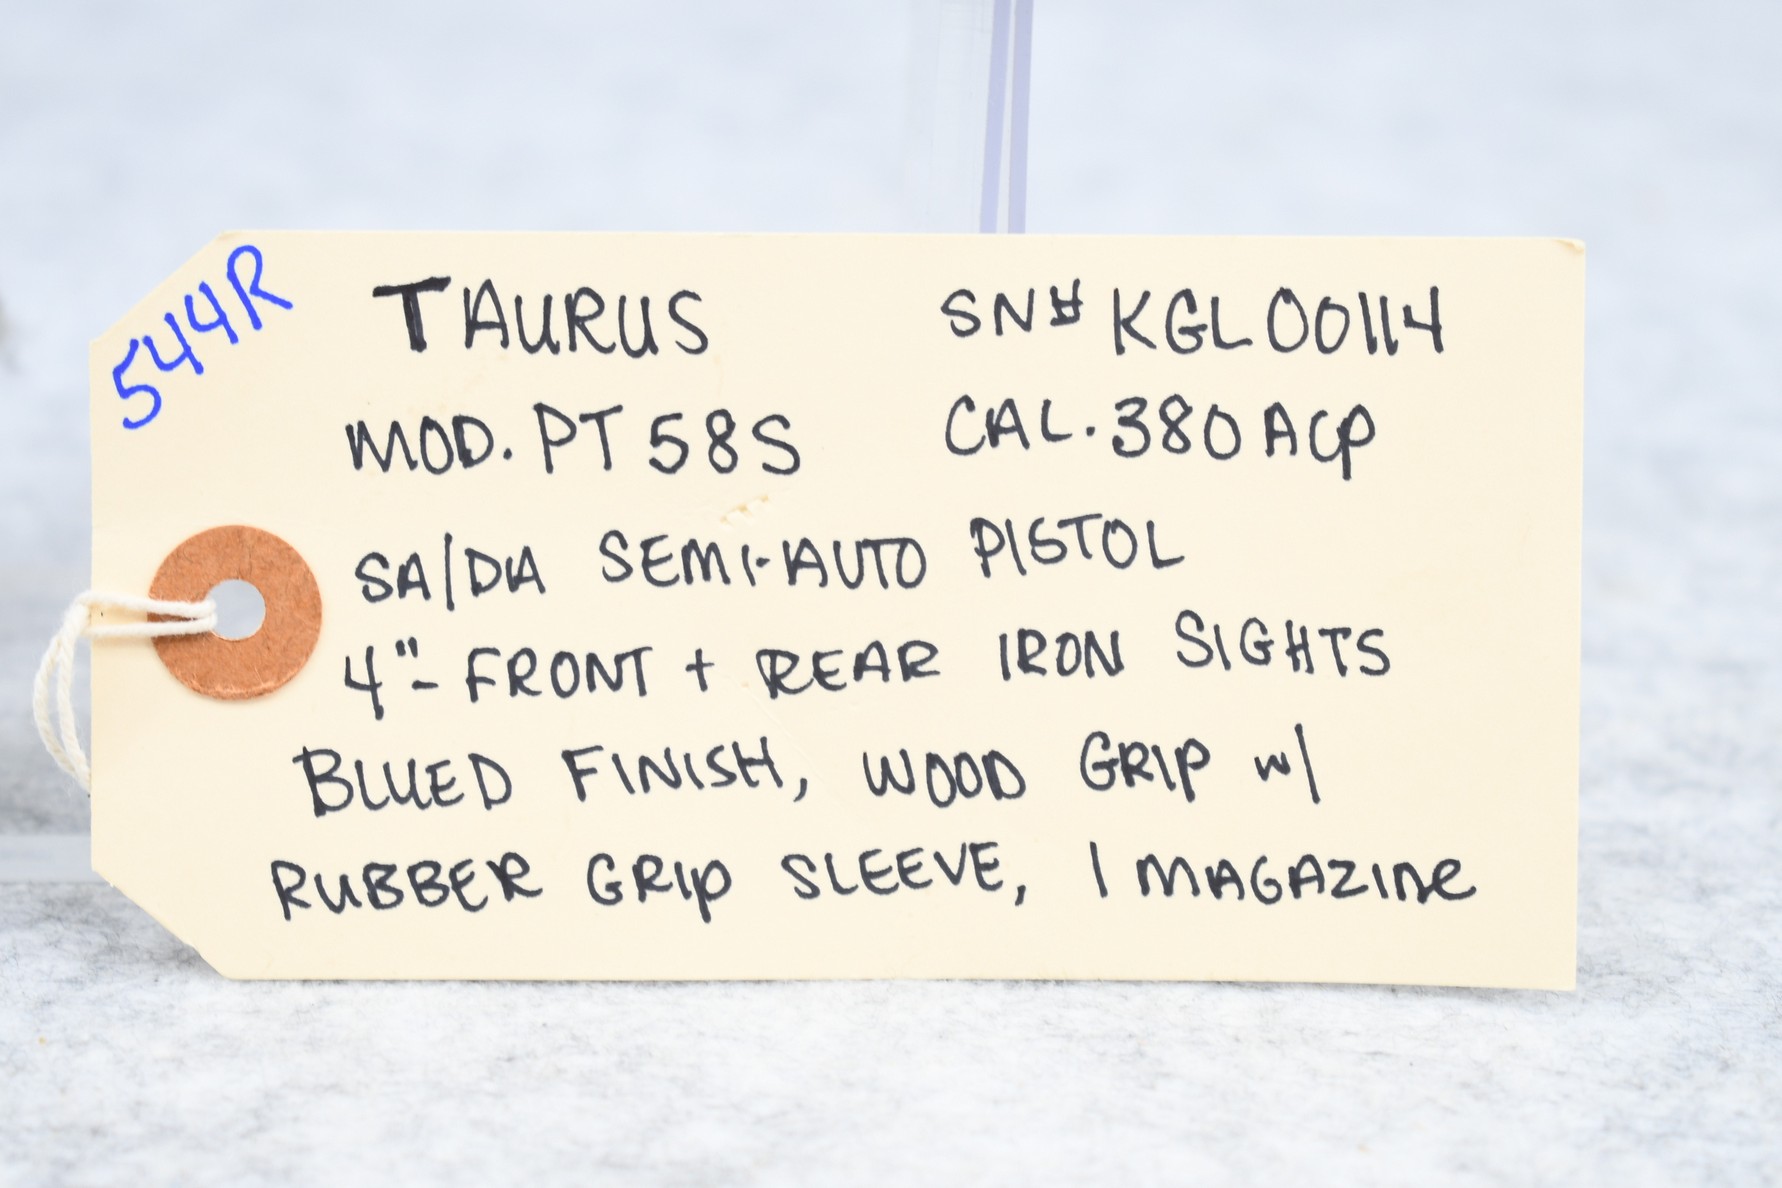 544R
TAURUS SN# KGL00114
MOD. PT 58S CAL. 380 ACP
SA/DA SEMI-AUTO PISTOL
4"- FRONT + REAR IRON SIGHTS
BLUED FINISH, WOOD GRIP w/
RUBBER GRIP SLEEVE, 1 MAGAZINE